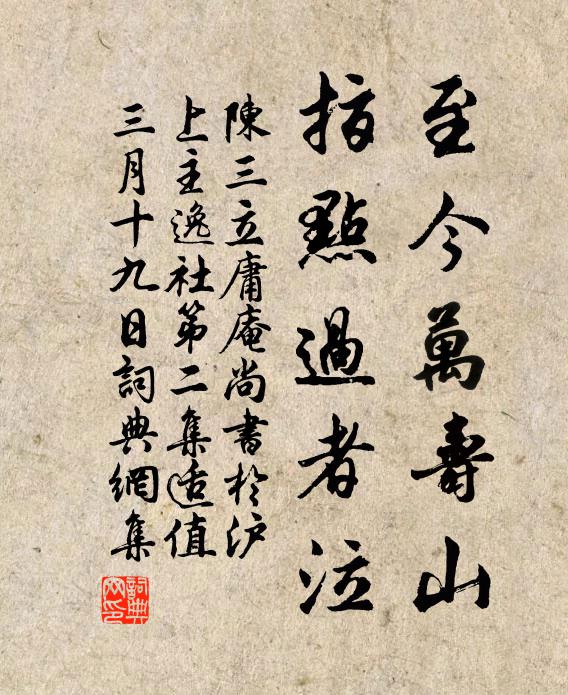 至今萬壽山
指點過者泣
陳三立庸庵尚書於沪
上主逸社第二集适值
三月十九日詞典網集
詞典网印